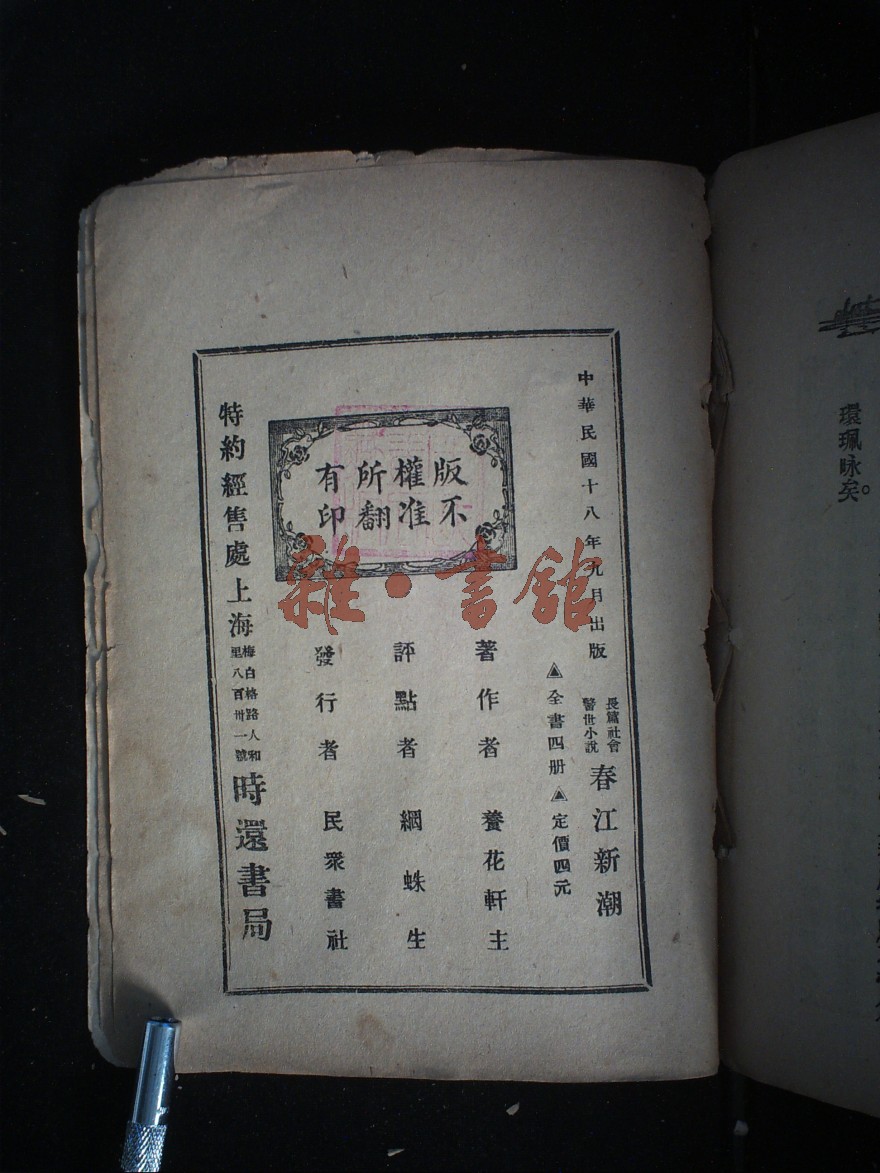 環珮咏矣。
中華民國十八年九月出版
長篇社會
警世小說
春江新潮
▲全書四册▲定價四元
版權所有
不准翻印
著作者 養花軒主
評點者 網蛛生
發行者 民衆書社
特約經售處上海梅白格路人和里八百卅一號時還書局
雜·書館